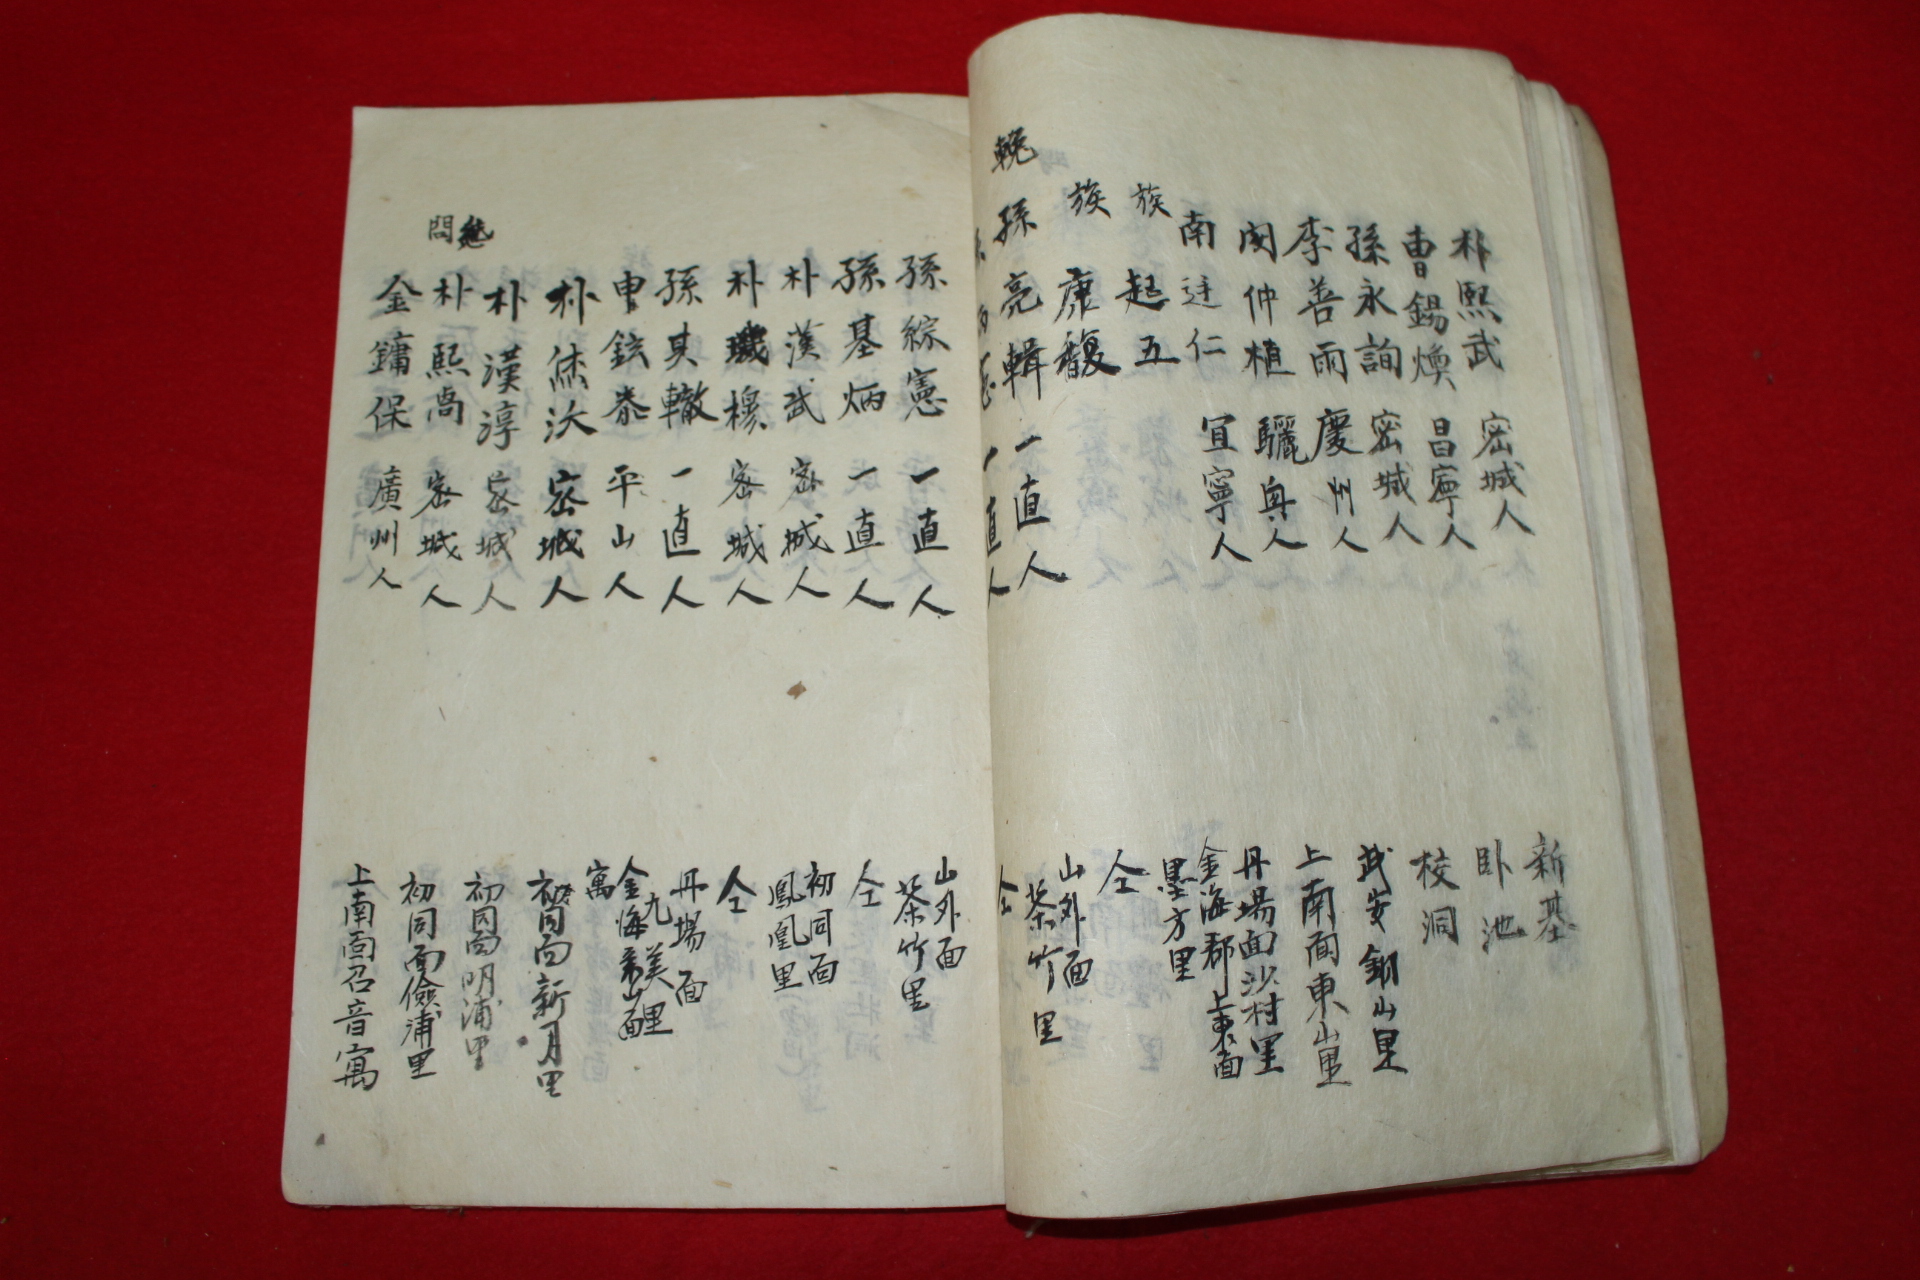 朴熙武 密城人 新基
曹錫煥 昌寧人 卧池
孫永詢 密城人 校洞
李善雨 慶州人 武安 山里
閔仲植 驪興人 上南面東山里
南廷仁 宜寧人 丹場面沙村里
金海郡上東面
墨方里
族 起五 仝
族 康馥 山外面
輓 孫亮輯 一直人 茶竹里
一直人 仝
孫綜憲 一直人 山外面
茶竹里
孫基炳 一直人 仝
朴漢武 密城人 初同面
鳳凰里
朴璣穆 密城人 仝
孫其轍 一直人 丹場面
九美里
申鉉泰 平山人 金海 山面
寓
朴 沃 密城人 初同面新月里
朴漢淳 密城人 初同面明浦里
問 朴熙卨 密城人 初同面儉浦里
金鏞保 廣州人 上南面召音寓